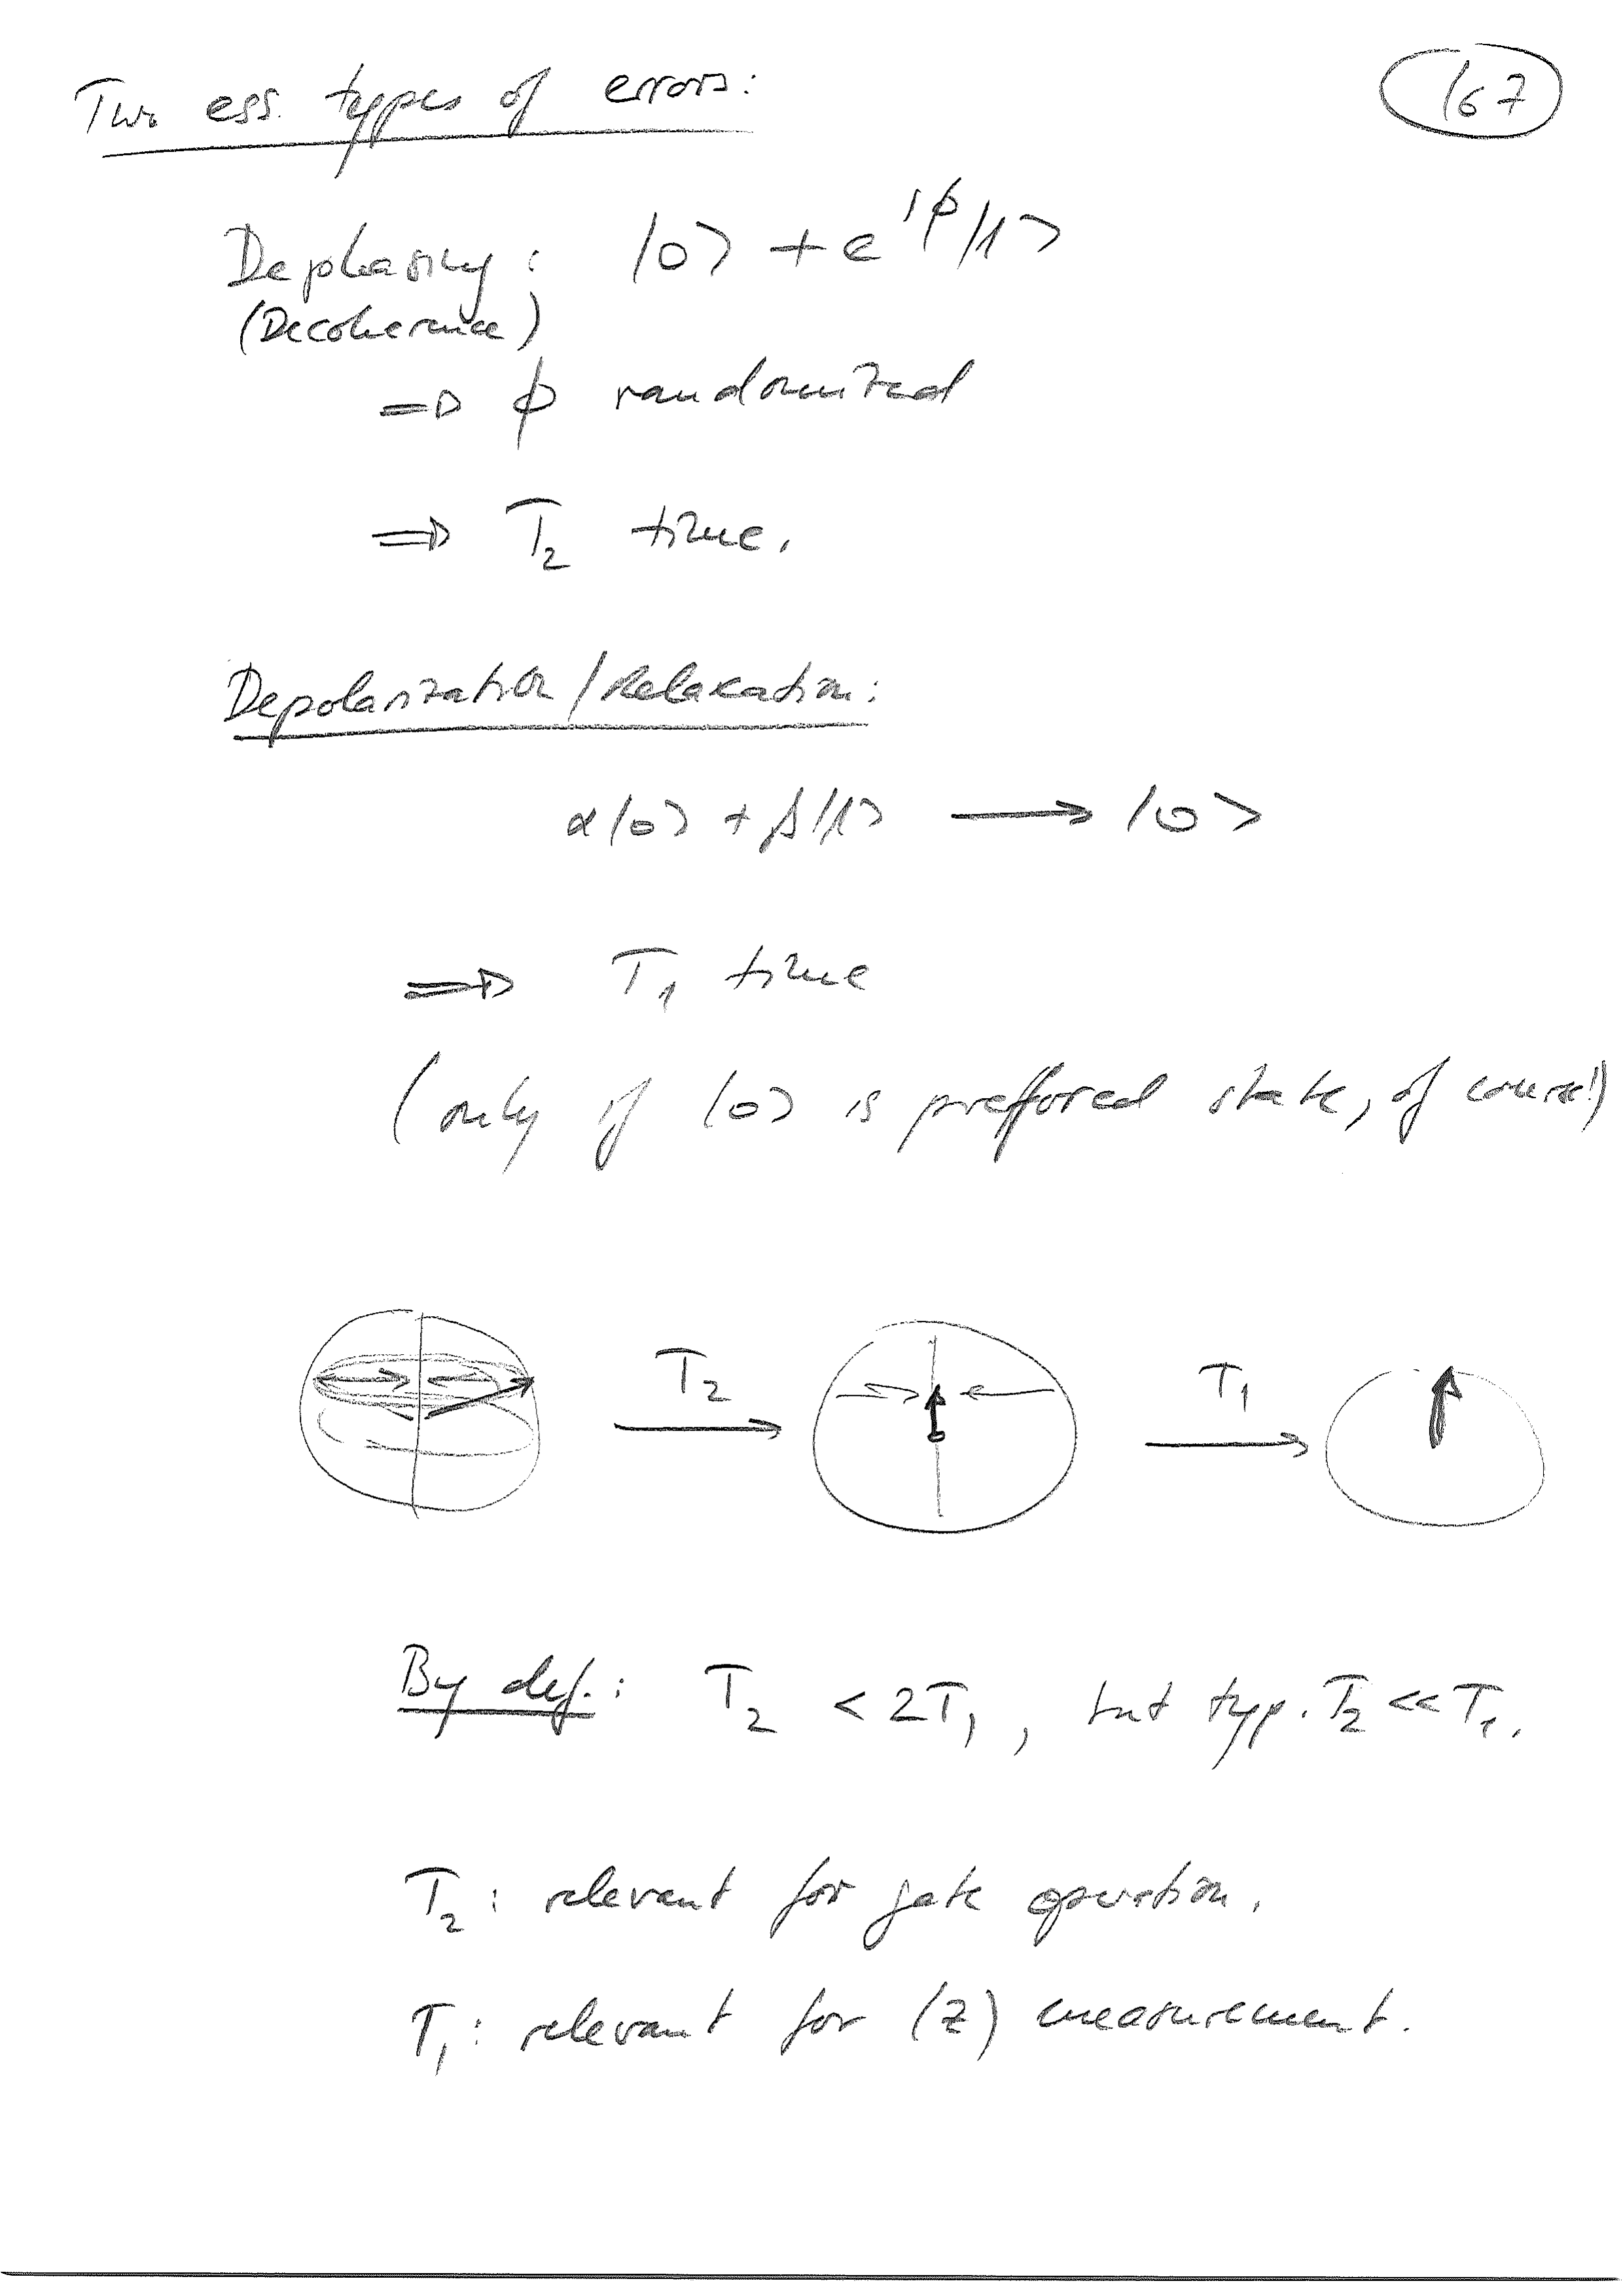 Two ess. types of errors:
167
Dephasing: |0> + e^{iϕ}|1>
(Decoherence)
⇒ ϕ randomized
⇒ T₂ time.
Depolarization/Relaxation:
α|0> + β|1> → |0>
⇒ T₁ time
(only if |0> is preffored state, of course!)
T₂
T₁
By def.: T₂ < 2T₁, but typ. T₂ << T₁.
T₂: relevant for gate operation.
T₁: relevant for (z) measurement.